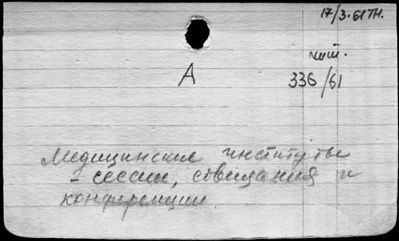 17/3-61 тн.
чит.
А
336/61
Медицинские институты
- сессии, совещания и
конференции.